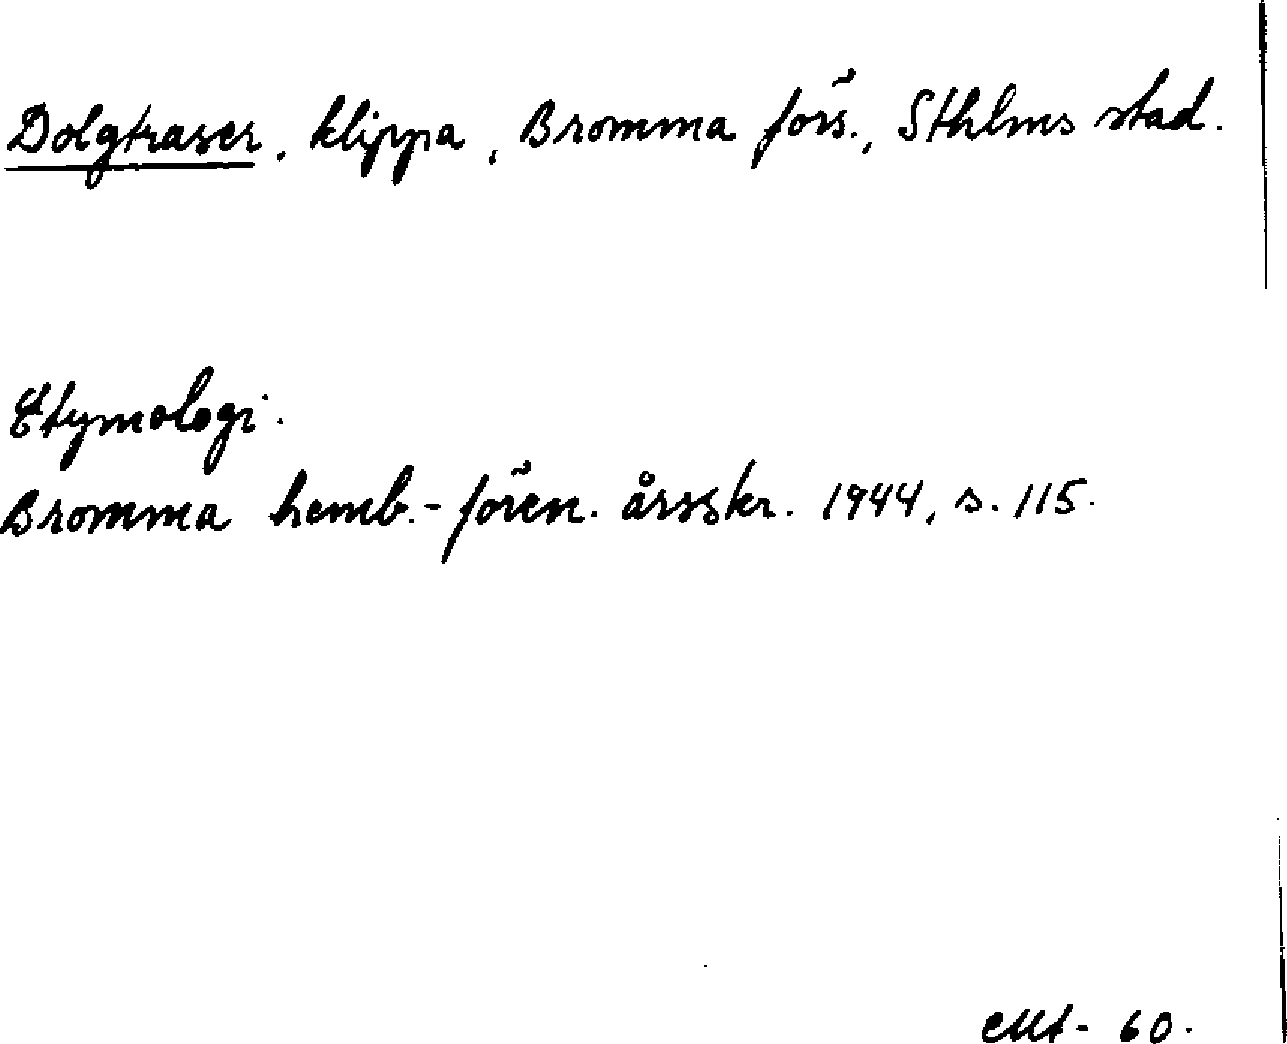 Dolgtraser, klippa, Bromma förs., Sthlms stad.
Etymologi.
Bromma hemb.-fören. årsskr. 1944, s. 115.
60.